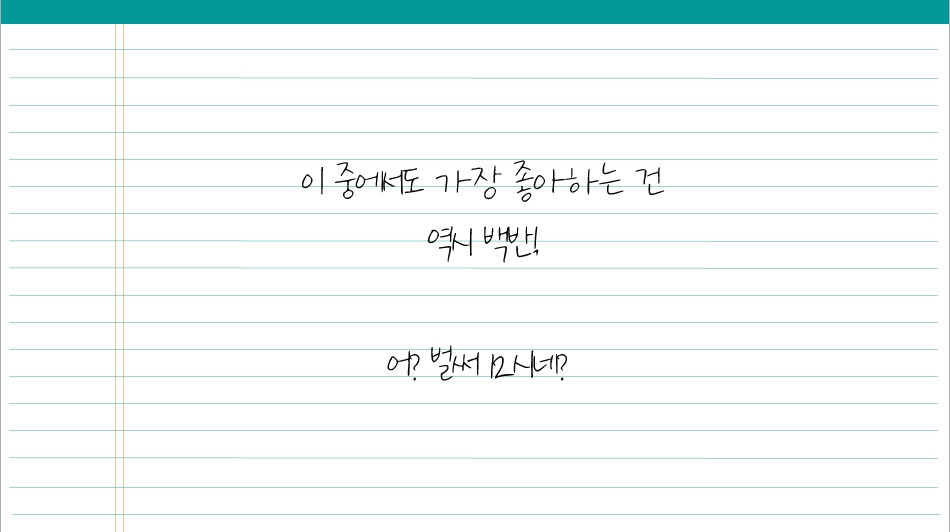 이 중에서도 가장 좋아하는 건
역시 백반!
어? 벌써 12시네?